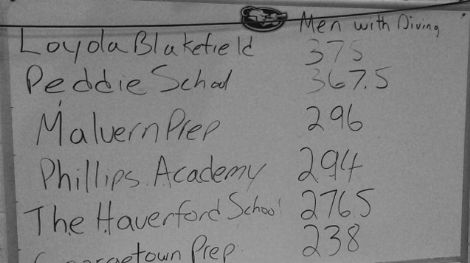 Men with Diving
Loyola Blakefield 375
Peddie School 367.5
Malvern Prep 296
Phillips Academy 294
The Haverford School 276.5
Georgetown Prep 238